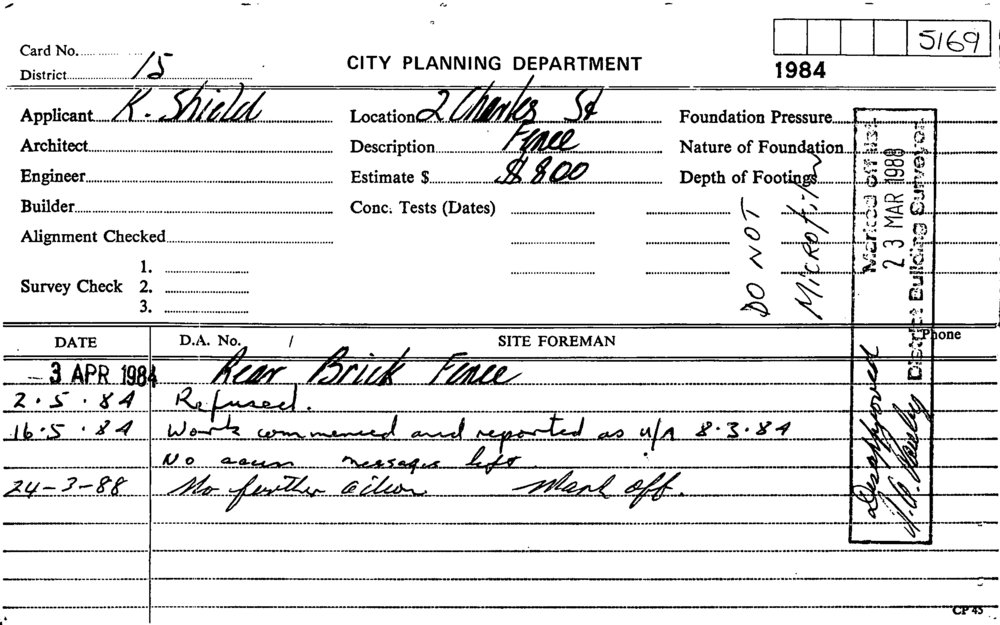 Card No.
5169
District 15
CITY PLANNING DEPARTMENT
1984
Applicant K. Shield
Location 2 Charles St
Foundation Pressure
Architect
Description Fence
Nature of Foundation
Engineer
Estimate $ $800
Depth of Footings
Builder
Conc. Tests (Dates)
Alignment Checked
Survey Check
1.
2.
3.
DO NOT
MICROFILM
Marked off list
23 MAR 1988
District Building Surveyor
Disapproved
DATE
D.A. No. /
SITE FOREMAN
Phone
3 APR 1984 Rear Brick Fence
2.5.84 Refused.
16.5.84 Work commenced and reported as u/A 8.3.84
No messages left
24-3-88 No further action Mark off.
CP 45